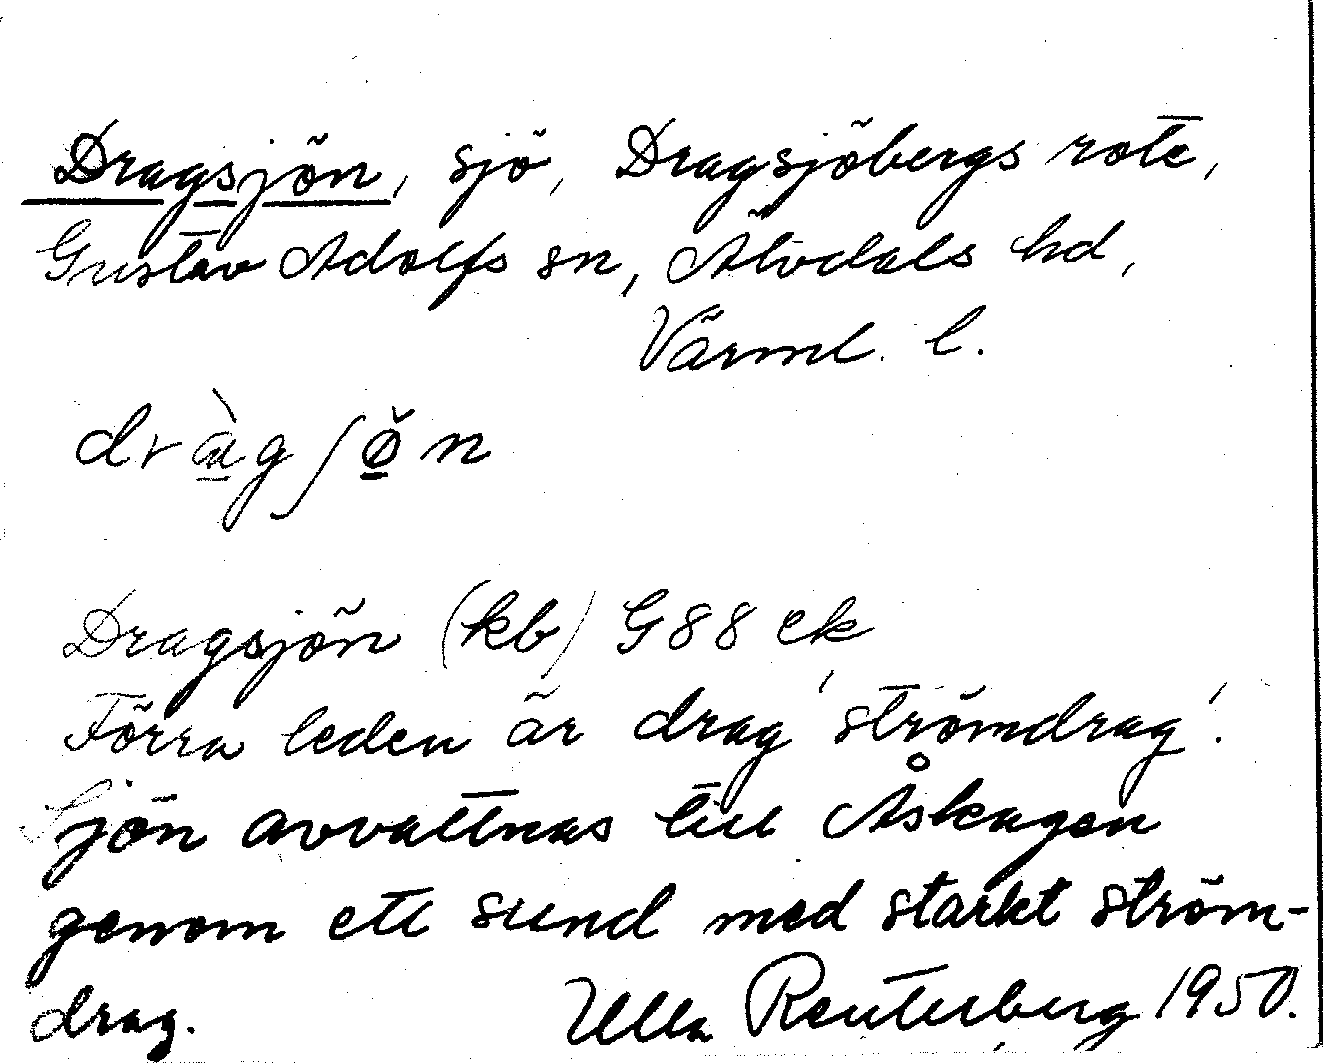 Dragsjön, sjö, Dragsjöbergs rote,
Gustav Adolfs sn, Älvdals hd,
Värml. l.
dràgʃø̌n
Dragsjön (kb) G88 ek
Förra leden är drag 'strömdrag'.
Sjön avvattnas till Åskagen
genom ett sund med starkt ström-
drag. Ulla Reuterberg 1950.